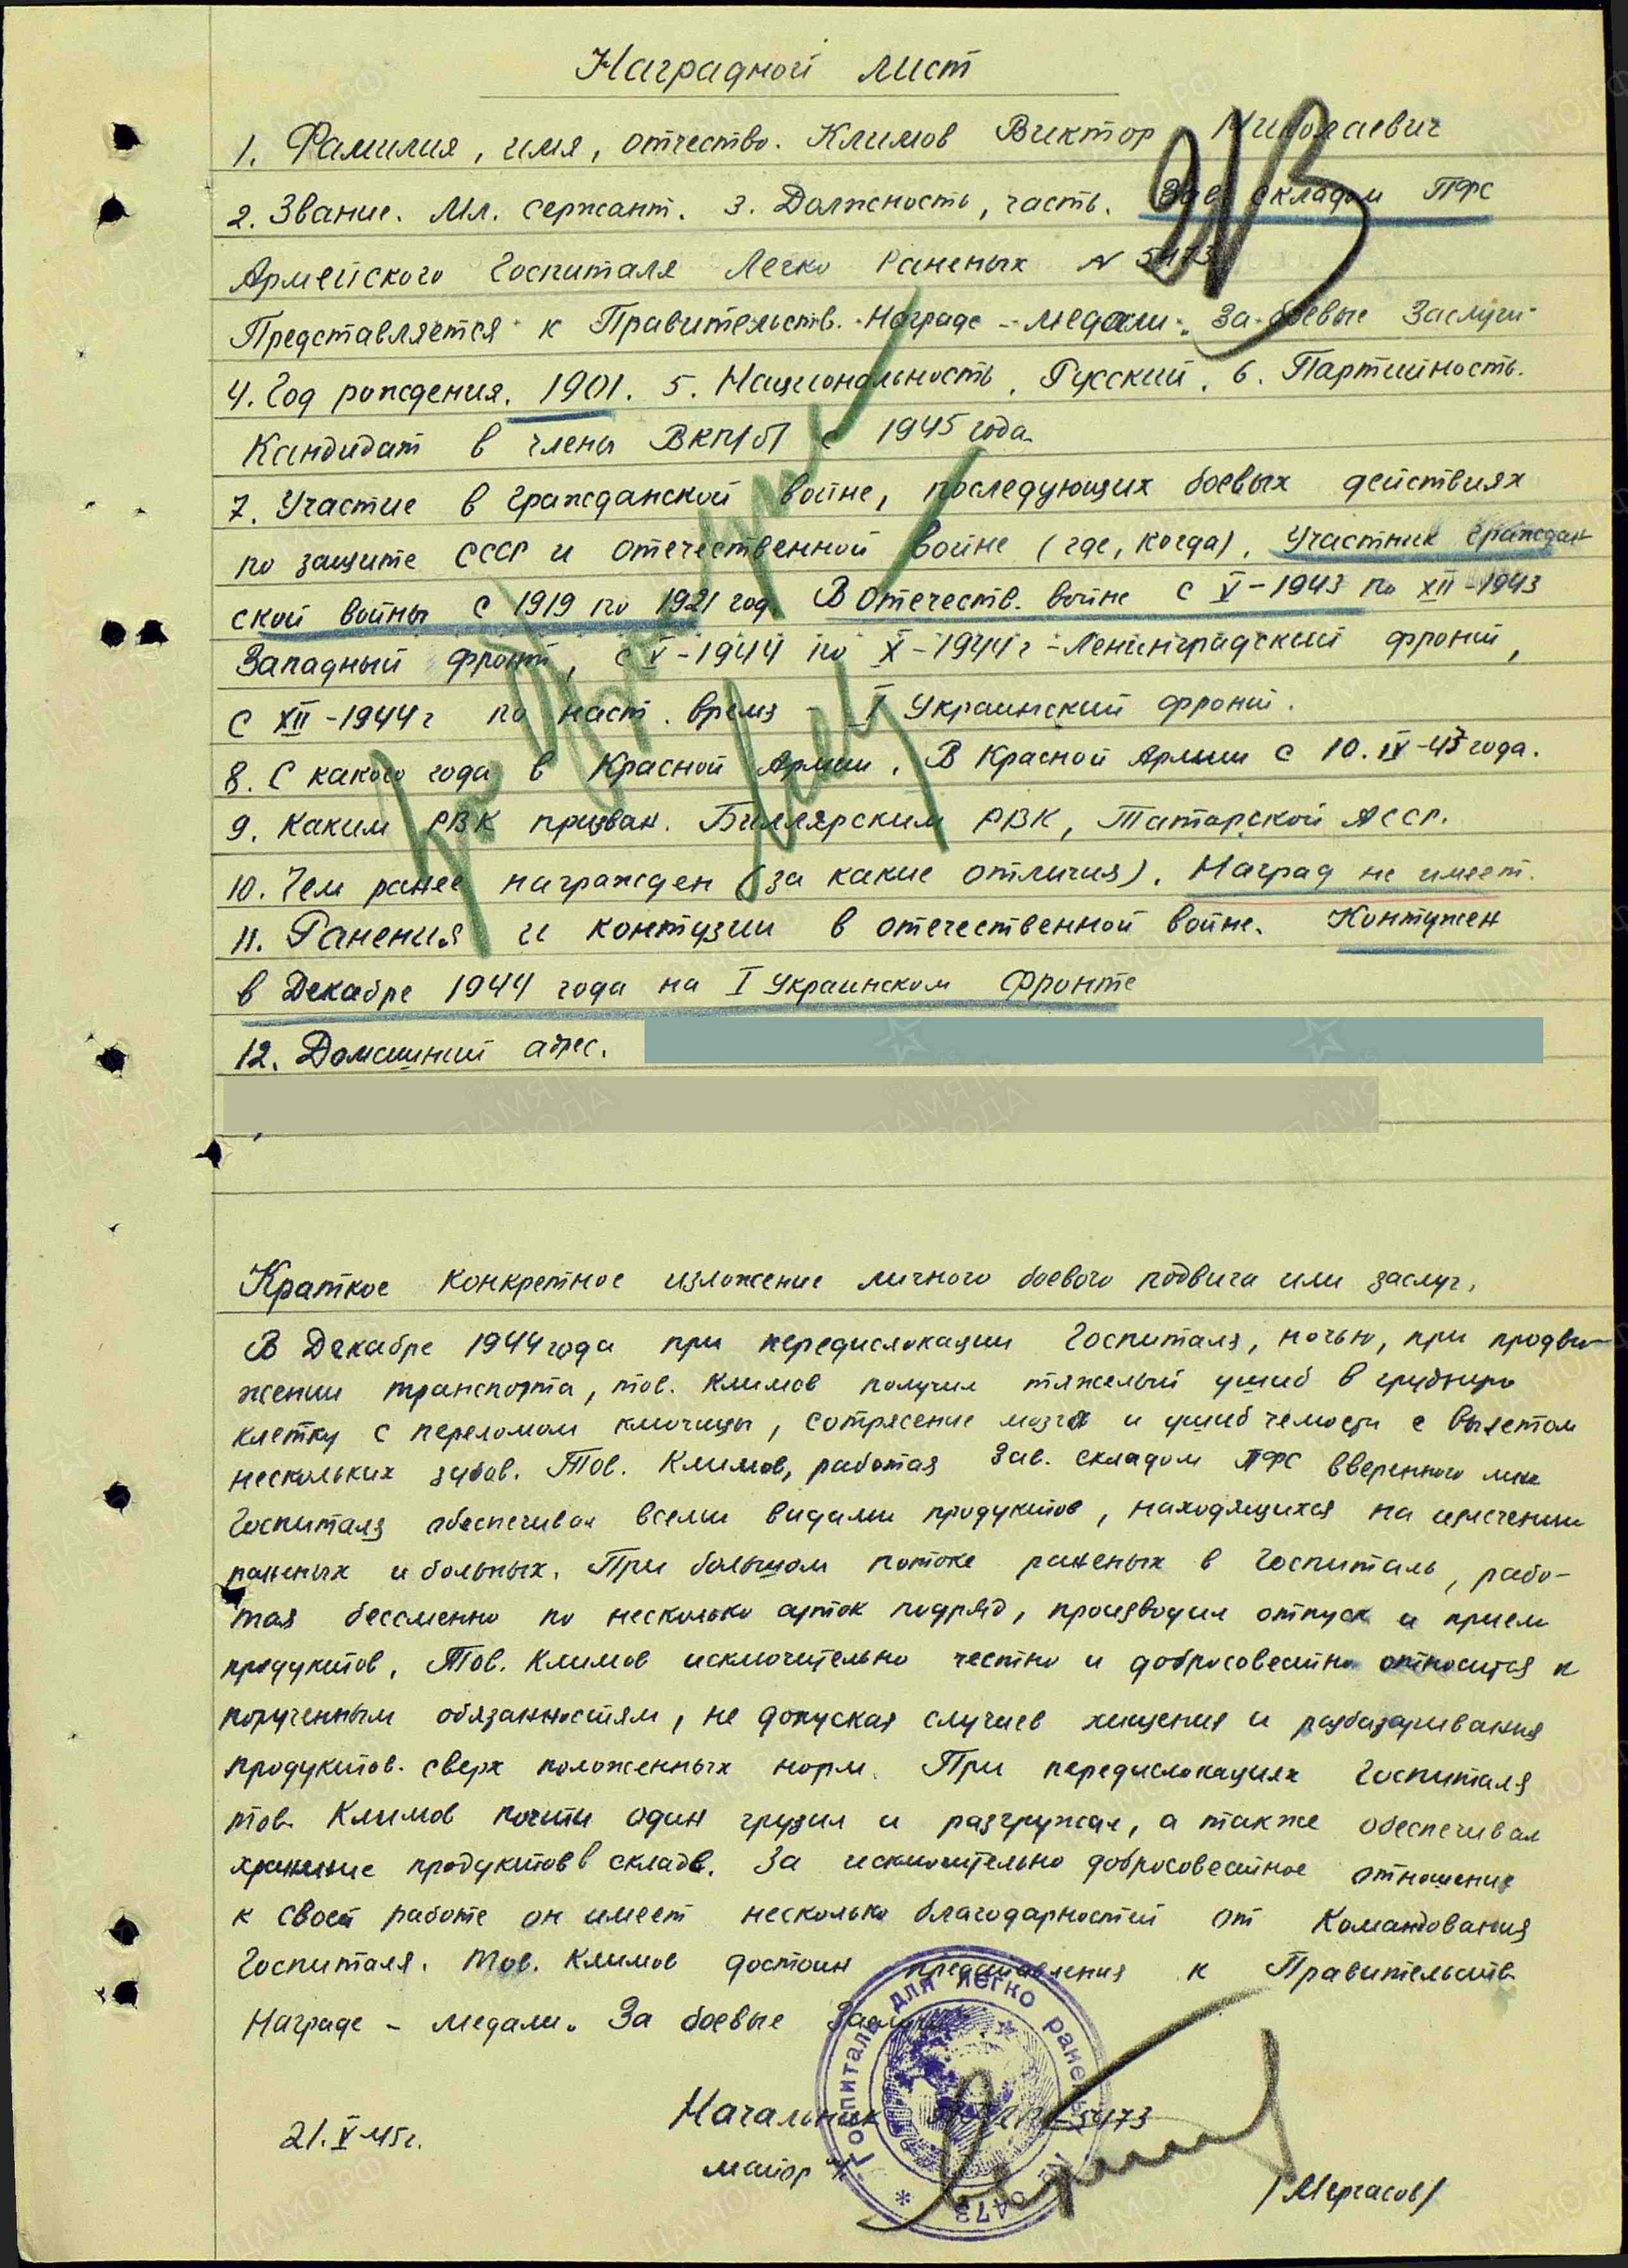 Наградной лист
1. Фамилия, имя, отчество. Климов Виктор Николаевич
2. Звание. Мл. сержант. 3. Должность, часть. Зав. складом ПФС
Армейского Госпиталя Легко Раненых N 5473
Представляется к Правительств. Награде - медали „За боевые Заслуги"
4. Год рождения. 1901. 5. Национальность. Русский. 6. Партийность.
Кандидат в члены ВКП/б/ с 1945 года.
7. Участие в гражданской войне, последующих боевых действиях
по защите СССР и отечественной войне (где, когда). Участник граждан
ской войны с 1919 по 1921 год. В Отечеств. войне с V-1943 по XII-1943
Западный фронт, с V-1944 по X-1944 г - Ленинградский фронт,
с XII-1944 г по наст. время - I Украинский фронт.
8. С какого года в Красной Армии. В Красной Армии с 10.IV-43 года.
9. Каким РВК призван. Биллярским РВК, Татарской АССР.
10. Чем ранее награжден (за какие отличия). Наград не имеет.
11. Ранения и контузии в отечественной войне. Контужен
в Декабре 1944 года на I Украинском Фронте
12. Домашний адрес.
Краткое конкретное изложение личного боевого подвига или заслуг.
В Декабре 1944 года при передислокации Госпиталя, ночью, при продви-
жении транспорта, тов. Климов получил тяжелый ушиб в грудную
клетку с переломом ключицы, сотрясение мозга и ушиб челюсти с вылетом
нескольких зубов. Тов. Климов, работая Зав. складом ПФС вверенного мне
Госпиталя обеспечивал всеми видами продуктов, находящихся на излечении
раненых и больных. При большом потоке раненых в Госпиталь, рабо-
тая бессменно по несколько суток подряд, производил отпуск и прием
продуктов, Тов. Климов исключительно честно и добросовестно относится к
порученным обязанностям, не допуская случаев хищения и разбазаривания
продуктов сверх положенных норм. При передислокациях Госпиталя
тов. Климов почти один грузил и разгружал, а также обеспечивал
хранение продуктов в складе. За исключительно добросовестное отношение
к своей работе он имеет несколько благодарностей от Командования
Госпиталя. Тов. Климов достоин представления к Правительств.
Награде - медали. За боевые Заслуги
Госпиталь для легко ранен 5473
Начальник 5473
21.V-45г.
майор м/с
/Мергасов/
ПАМЯТЬ НАРОДА